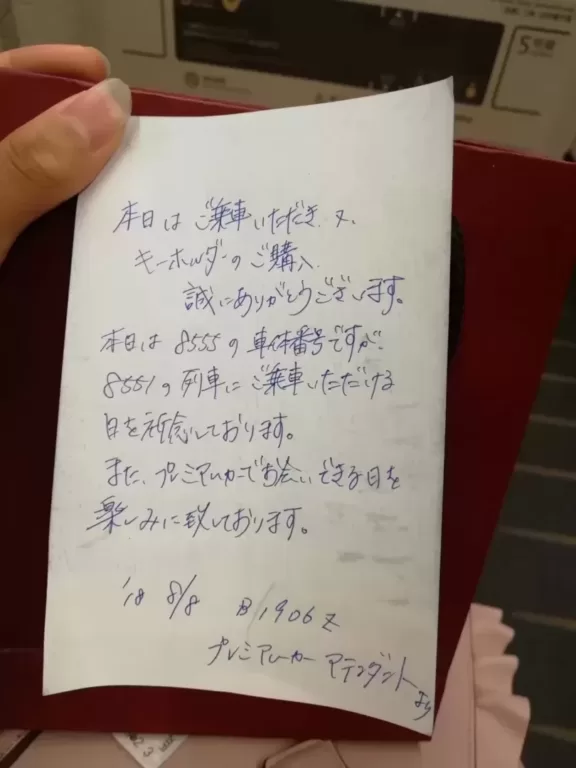 本日は ご乗車いただき、又、
キーホルダーの ご購入
誠にありがとうございます。
本日は 8555の 車体番号ですが、
8551の 列車に ご乗車いただける
日を祈念しております。
また、プレミアムカーでお会いできる日を
楽しみに致しております。
'18 8/8 B1906Z
プレミアムカー アテンダント
より
5号機